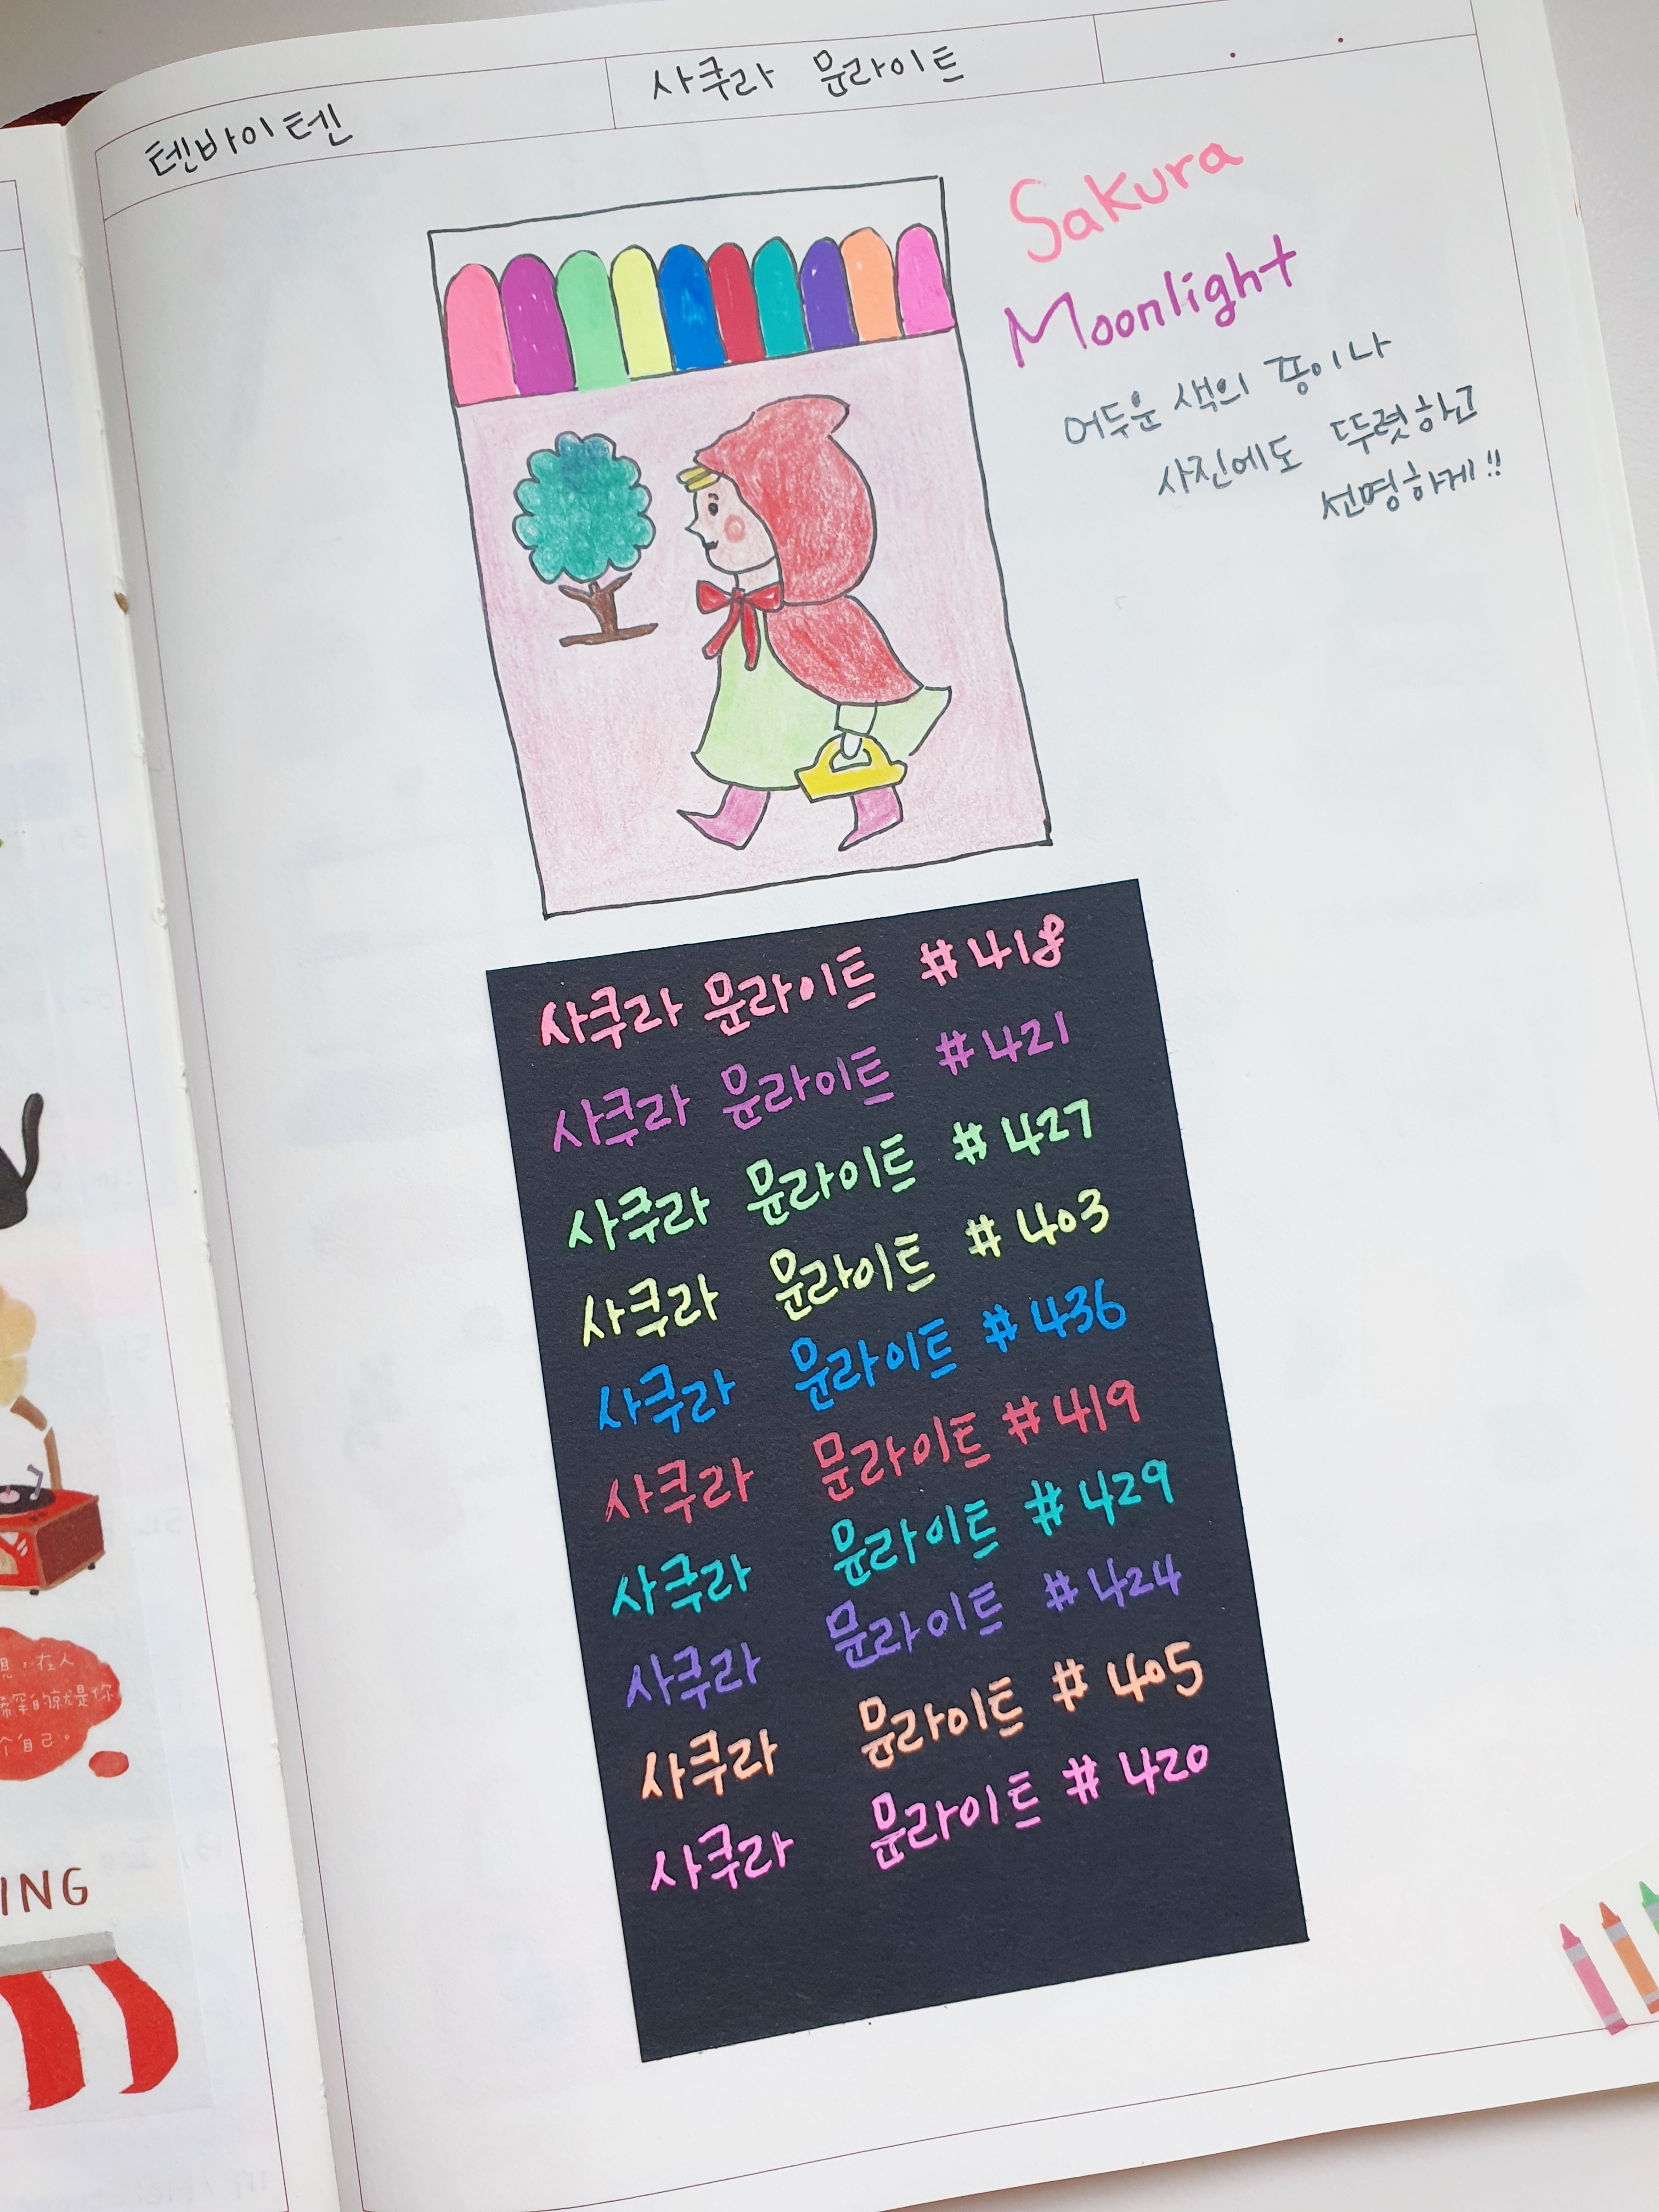 텐바이텐
사쿠라 문라이트
Sakura
Moonlight
어두운 색의 종이나
사진에도 뚜렷하고
선명하게!!
사쿠라 문라이트 #418
사쿠라 문라이트 #421
사쿠라 문라이트 #427
사쿠라 문라이트 #403
사쿠라 문라이트 #436
사쿠라 문라이트 #419
사쿠라 문라이트 #429
사쿠라 문라이트 #424
사쿠라 문라이트 #405
사쿠라 문라이트 #420
在人
是你
个自己。
ING